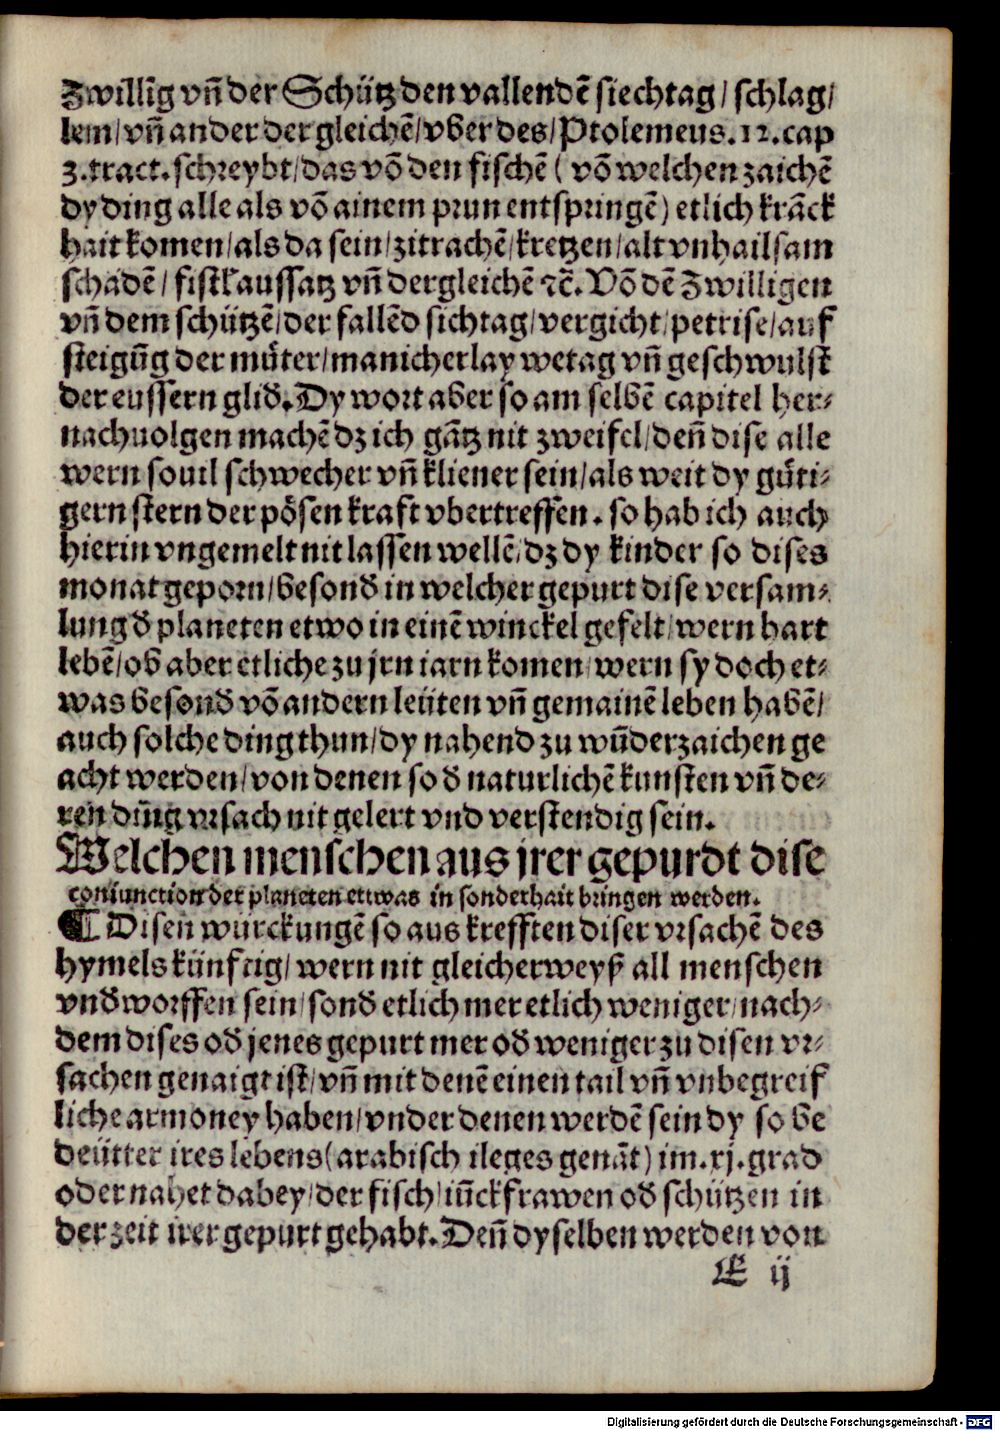 Zwillīg vn̄ der Schütz den vallendē siechtag / schlag /
lem / vn̄ ander der gleichē / vber des / Ptolemeus. 12. cap
3. tract. schreybt / das vō den fischē ( vō welchen zaichē
dy ding alle als vō ainem prun entspringē ) etlich krāck
hait komen / als da sein / zitrachē / kretzen / alt vnhailsam
schadē / fistl aussatz vn̄ dergleichē ⁊c̄. Vō dē Zwilligen
vn̄ dem schützē / der fallēd sichtag / vergicht / petrise / auf
steigūg der můter / manicherlay wetag vn̄ geschwulst
der eussern glid. Dy wort aber so am selbē capitel her⸗
nachuolgen machē dz ich gātz nit zweifel / den̄ dise alle
wern souil schwecher vn̄ kliener sein / als weit dy gůti⸗
gern stern der pösen kraft vbertreffen. so hab ich auch
hierin vngemelt nit lassen wellē / dz dy kinder so dises
monat geporn / besonđ in welcher gepurt dise versam⸗
lung đ planeten etwo in einē winckel gefelt / wern hart
lebē / ob aber etliche zu jrn iarn komen / wern sy doch et⸗
was besonđ vō andern leüten vn̄ gemainē leben habē /
auch solche ding thun / dy nahend zu wūderzaichen ge
acht werden / von denen so đ naturlichē kunsten vn̄ de⸗
ren din̄g vrsach nit gelert vnd verstendig sein.
Welchen menschen aus jrer gepurdt dise
coniunction der planeten ettwas in sonderhait bringen werden.
¶ Disen würckungē so aus krefften diser vrsachē des
hymels künftig / wern nit gleicherweyß all menschen
vnđworffen sein / sonđ etlich mer etlich weniger / nach⸗
dem dises ođ jenes gepurt mer ođ weniger zu disen vr⸗
sachen genaigt ist / vn̄ mit denē einen tail vn̄ vnbegreif
liche armoney haben / vnder denen werdē sein dy so be
deütter ires lebens ( arabisch ileges genāt ) im. xj. grad
oder nahet dabey / der fisch / iūckfrawen ođ schützen in
der zeit irer gepurt gehabt. Den̄ dyselben werden von
E ij
Digitalisierung gefördert durch die Deutsche Forschungsgemeinschaft - DFG